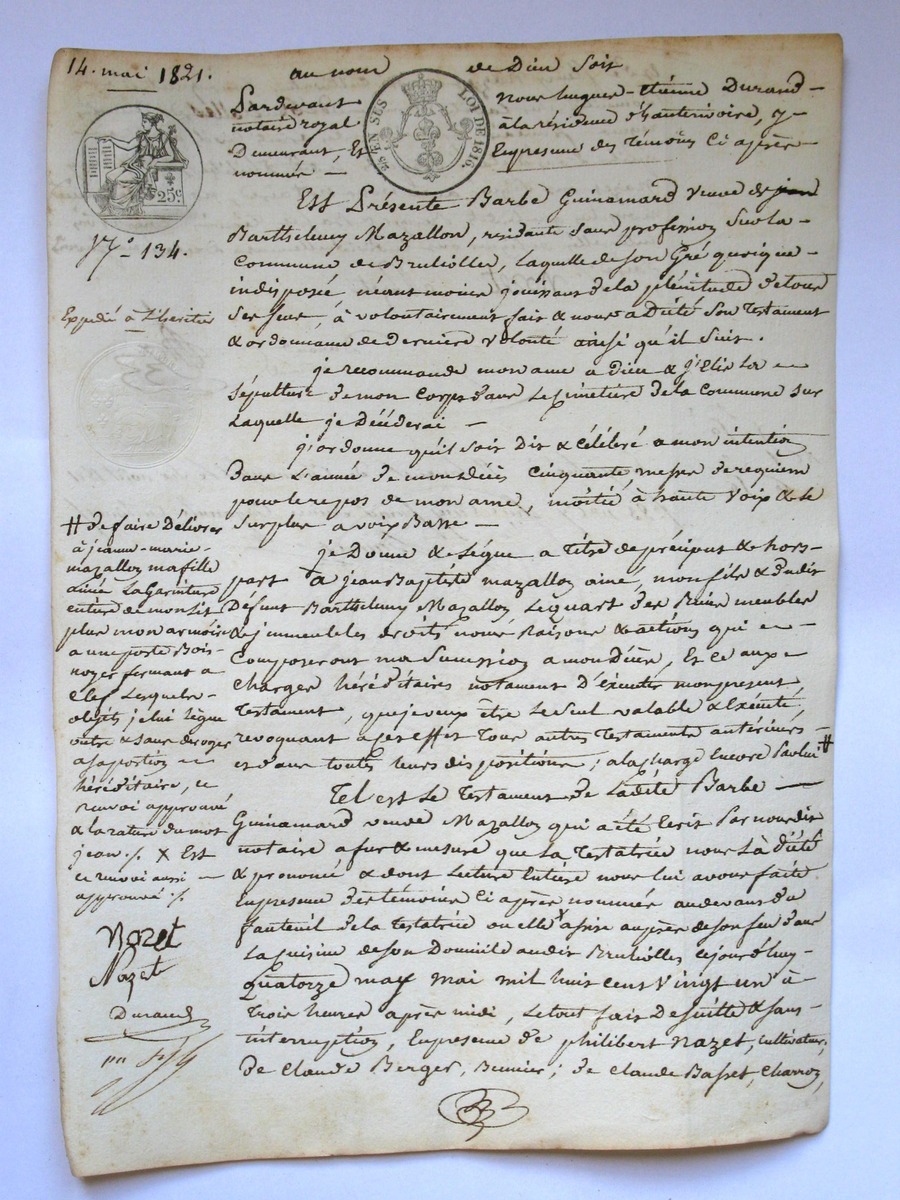 14. mai 1821.
au nom de Dieu Soit
Pardevant Nous hugues-étienne Durand
notaire royal à la résidence d'hauterivoire, y
Demeurant, Et En presence des témoins Ci après
nommés
25 EN SUS
LOI DE 1816.
25c
N.° 134.
Expédié à l'héritier
Est Présente Barbe Guinamard veuve de jean
Barthelemy Mazallon, résidante sans profession Sur la
Commune de Brulliolles, Laquelle de son Gré quoique
indisposée néantmoins jouissant de la plénitude de tous
ses sens, à volontairement fait & nous a Dicté Son testament
& ordonnance de derniere volonté ainsi qu'il Suit.
je recommande mon ame à Dieu & j'élis la
Sépulture de mon Corps dans Le Cimetière de la Commune sur
Laquelle je Décéderai
j'ordonne qu'il soit Dit & Célébré a mon intention
Dans L'année de mon décès Cinquante messes de requiem
pour le repos de mon ame, moitié à haute Voix & le
Surplus a voix Basse
je Donne & Lègue a titre de précipus & hors
part à jean Baptiste mazallon ainé, mon fils & dudit
Défunt Barthelemy Mazallon Le quart des Biens meubles
& jmmeubles droits noms Raisons & actions qui
Composeront ma Succession a mon Décès, Et ce aux
Charges héréditaires notament D'éxécuter mon present
testament, que je veux être Le Seul valable & Exécuté,
revoquant a cet effet tous autres testaments antérieurs
et dans toutes leurs dispositions; a la charge encore Par lui #
Tel est Le testament de Ladite Barbe
Guinamard veuve Mazallon qui a été Ecrit Par nous dit
notaire a fur & mesure que La testatrice nous L'à Dicté
& prononcé & dont Lecture Entière nous lui avons faite
En presence des témoins Ci après nommés au devant du
fauteuil de la testatrice ou elle X assise auprès de son feu dans
La cuisine de son Domicile audit Brulliolles Cejourd'huy
Quatorze may mai mil huit cent Vingt un à
trois heures après midi, Le tout fait De suitte & sans
interruption, En presence de philibert Nazet, cultivateur;
de Claude Berger, ; de Claude Basset, Charron,
# de faire Délivrer
à jeanne-marie
mazallon ma fille
ainée La Garniture
entière de mon Lit
plus mon armoire
a une porte Bois
noyer fermant a
Clef Lesquels
objets je lui lègue
outre & sans déroger
a sa portion
héréditaire, ce
renvoi approuvé
& la rature du mot
jean ./. X Est
ce renvoi aussi
approuvé ./.
Nazet
Nazet
Durand